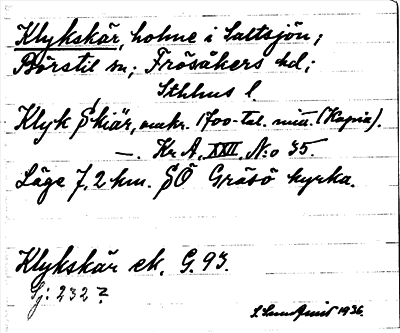 Klykskär, holme i Saltsjön;
Börstil sn; Frösåkers hd;
Sthlms l.
Klyk Skiär, omkr. 1700-tal. mitt. (Kopia).
—. Kr. A. XXII. N:o 35.
Läge 7,2 km. SÖ Gräsö kyrka.
Klykskär ek. G. 93.
Sj: 232?
S. Lundquist 1936.